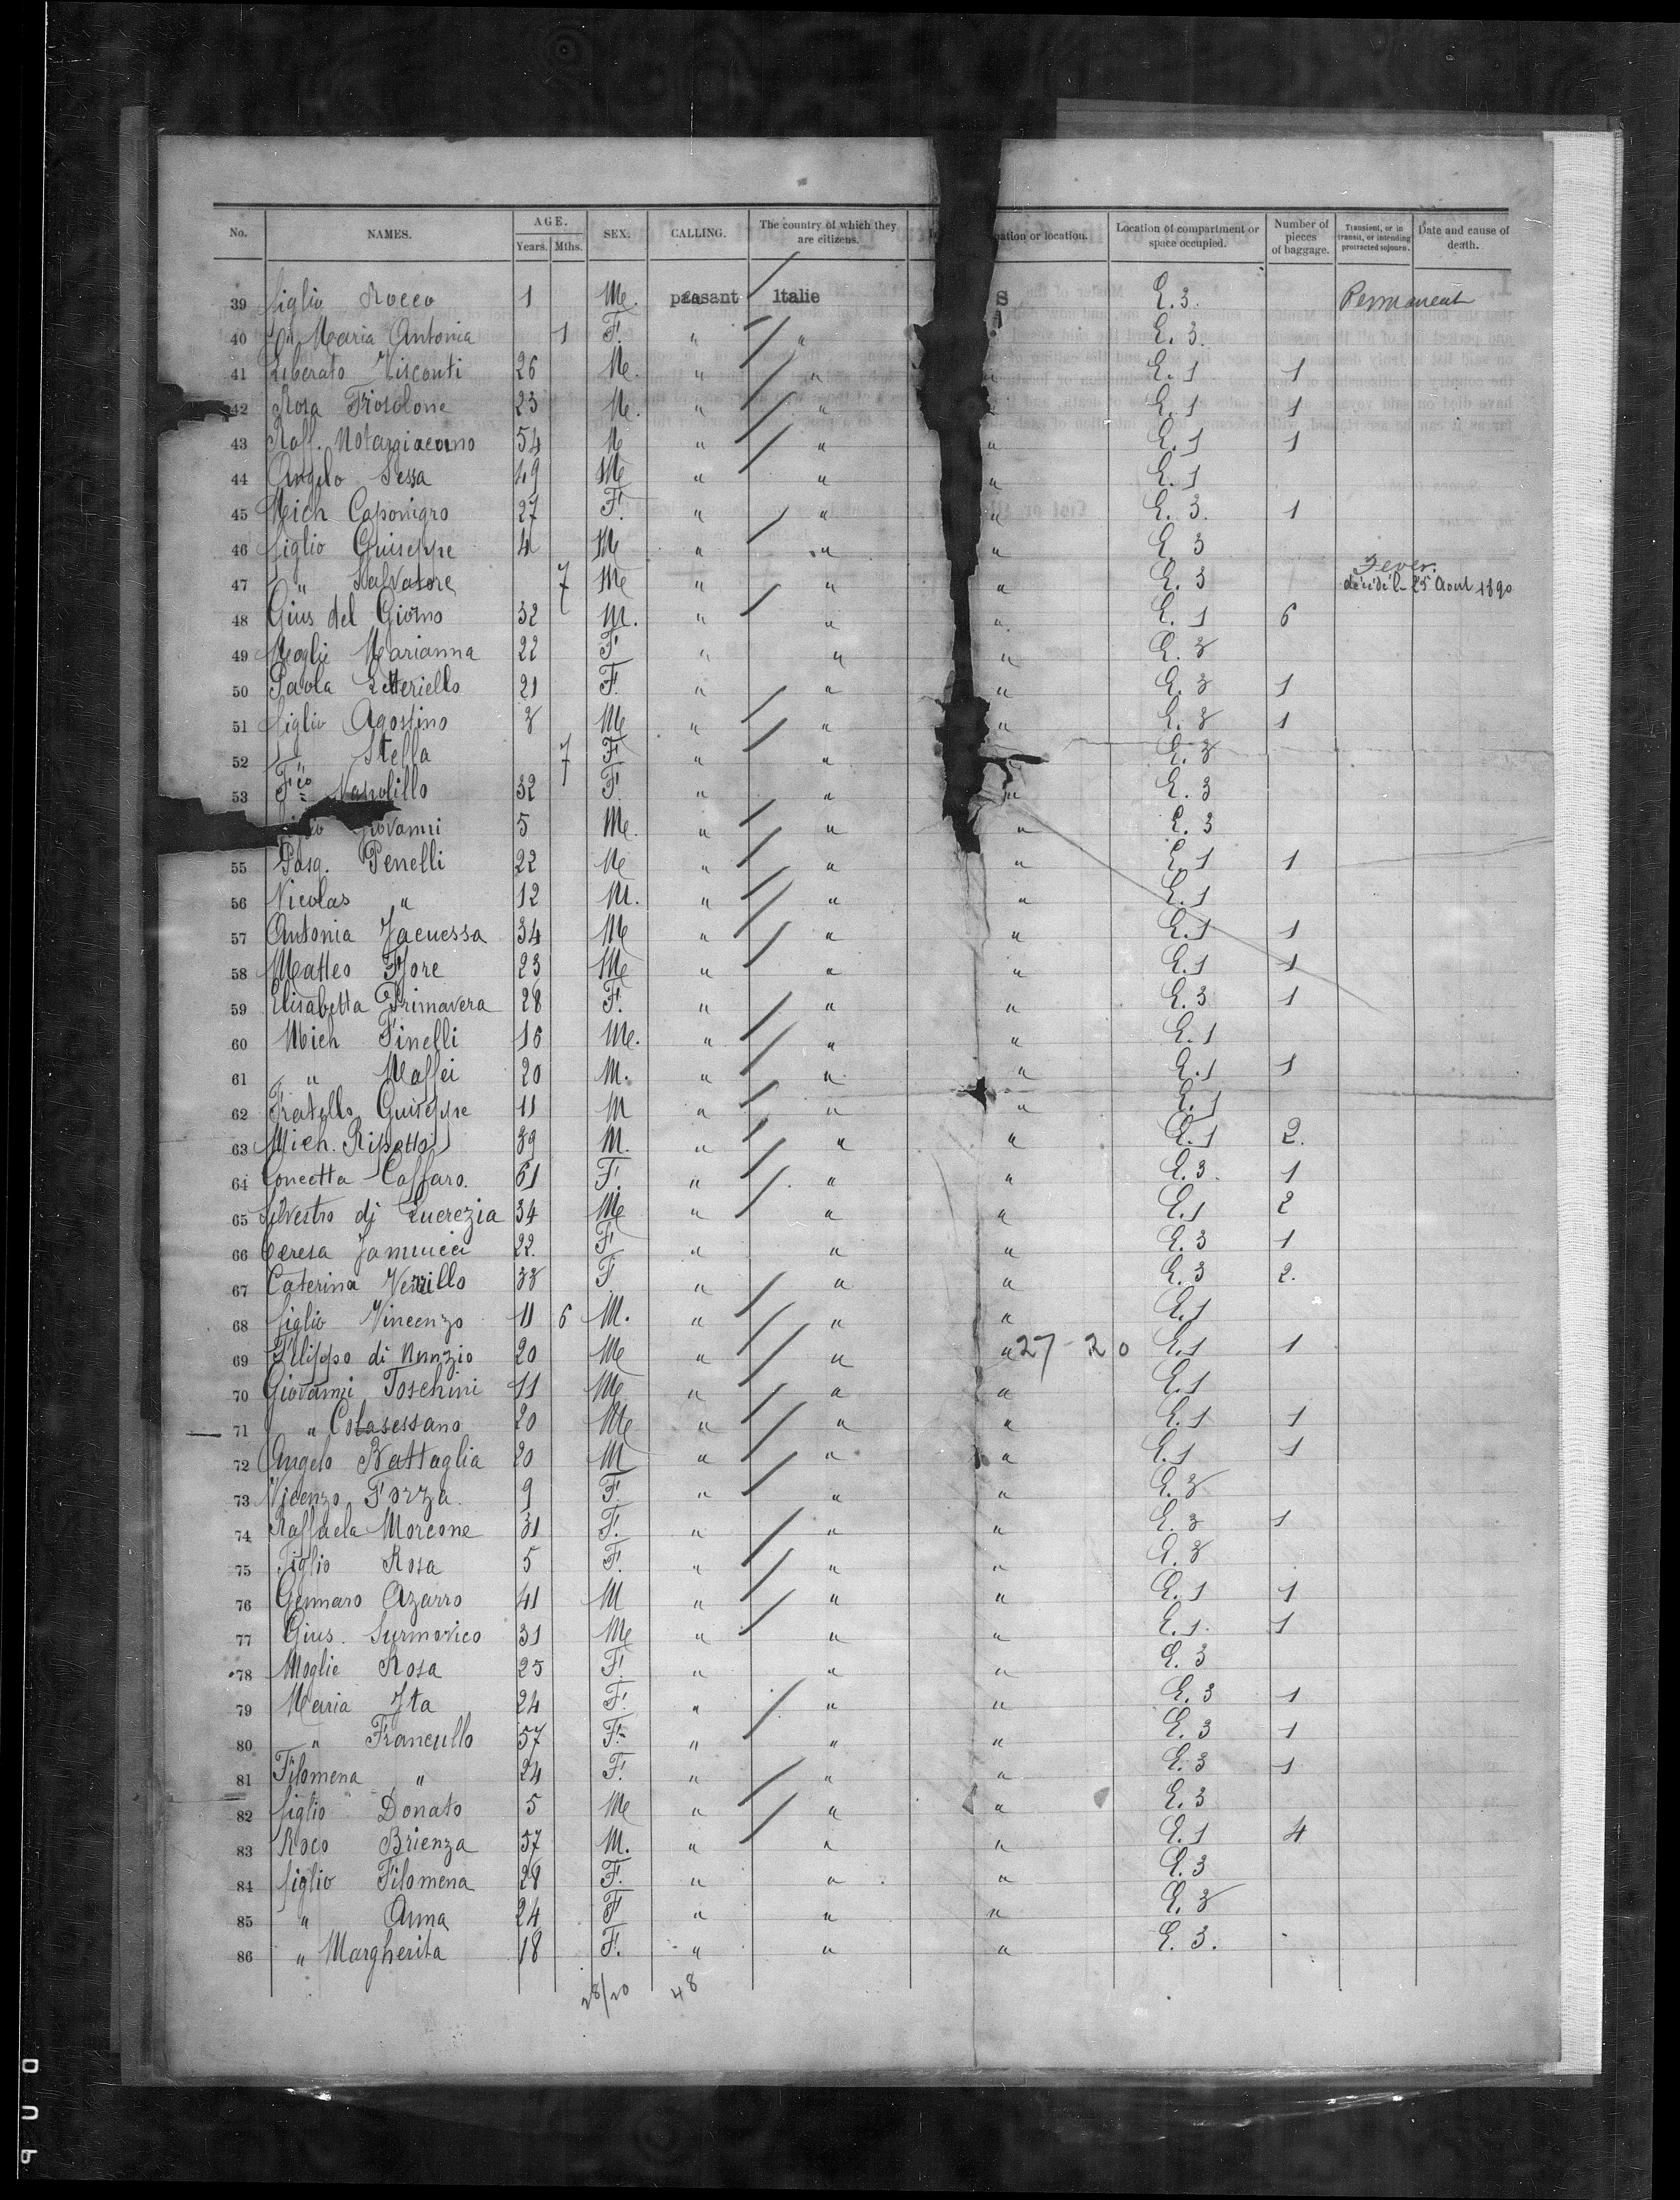 No. NAMES. AGE. Years. Mths. SEX. CALLING. The country of which they are citizens. ation or location. Location of compartment or space occupied. Number of pieces of baggage. Transient, or in transit, or intending protracted sojourn. Date and cause of death.
39 figlio Rocco 1 M. peasant Italie S E.3. Permanent
40 Maria Antonia 1 F. " " E.3.
41 Liberato Visconti 26 M. " " " E.1 1
42 Rosa Frosolone 23 M. " " E.1 1
43 Raff. Notargiacomo 54 M " " " E.1 1
44 Angelo Sessa 49 M " " " E.1
45 Mich Caponigro 27 F. " " " E.3. 1
46 figlio Guiseppe 4 M " " " E.3
47 " Salvatore 7 M " " " E.3 Fever. décédé le 25 Aout 1890
48 Gius del Giorno 32 M. " " " E.1 6
49 Moglie Marianna 22 F " " " E.3
50 Paola Letteriello 21 F. " " " E.3 1
51 figlio Agostino 3 M " " " E.3 1
52 " Stella 7 F " " E.3
53 Fco Napolillo 32 F. " " " E.3
Giovanni 5 M. " " " E.3
55 Pasq. Penelli 22 M " " " E.1 1
56 Nicolas " 12 M. " " " E.1
57 Antonia Jacuessa 34 M " " " E.1 1
58 Matteo Fjore 23 M " " " E.1 1
59 Elisabetta Primavera 28 F. " " " E.3 1
60 Mich Finelli 16 M. " " " E.1
61 " Maffei 20 M. " " " E.1 1
62 Fratello Guiseppe 11 M " " " E.1
63 Mich. 39 M. " " " E.1 2.
64 Concetta Caffaro. 61 F. " " " E.3. 1
65 Silvestro di Lucrezia 34 M " " " E.1 2
66 Teresa Jannucci 22. F " " " E.3 1
67 Caterina Verrillo 33 F " " " E.3 2.
68 figlio Vincenzo 11 6 M. " " " E.1
69 Filippo di Nunzio 20 M " " " 27-20 E.1 1
70 Giovanni Toschini 11 M " " " E.1
71 " Colasessano 20 M " " " E.1 1
72 Angelo Battaglia 20 M " " " E.1 1
73 Vicenzo Forza. 9 F. " " " E.3
74 Raffaela Morcone 31 F. " " " E.3 1
75 Figlio Rosa 5 F. " " " E.3
76 Gennaro Azarro 41 M " " " E.1 1
77 Gius. Surmonico 31 M " " " E.1. 1
78 Moglie Rosa 25 F. " " " E.3
79 Maria Ita 24 F. " " " E.3 1
80 " Francullo 57 F. " " " E.3 1
81 Filomena " 24 F. " " " E.3 1
82 figlio Donato 5 M " " " E.3
83 Roco Brienza 57 M. " " " E.1 4
84 figlio Filomena 28 F. " " " E.3
85 " Anna 24 F " " " E.3
86 " Margherita 18 F. " " " E.3.
28/20 48